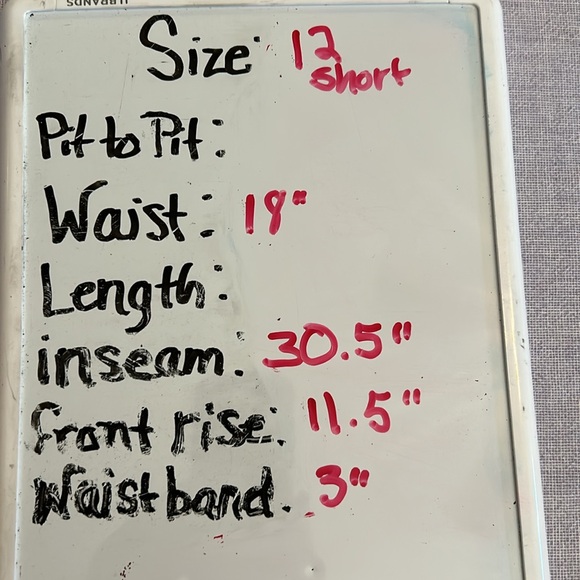 Size: 12
short
Pit to Pit:
Waist: 18"
Length:
inseam: 30.5"
front rise: 11.5"
Waistband. 3"